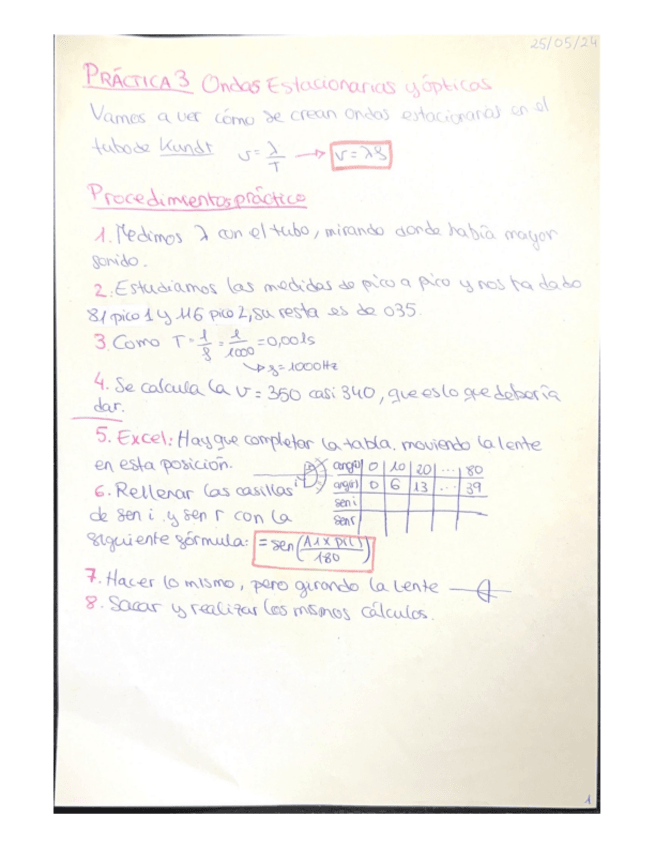 25/05/24
PRÁCTICA 3 Ondas Estacionarias y ópticas
Vamos a ver cómo se crean ondas estacionarias en el
tubo de Kundt v = λ/T → v = λf
Procedimientos práctico
1. Medimos λ con el tubo, mirando donde había mayor
sonido.
2. Estudiamos las medidas de pico a pico y nos ha dado
81 pico 1 y 116 pico 2, su resta es de 035.
3. Como T = 1/f = 1/1000 = 0,001s
↳ f = 1000Hz
4. Se calcula la v = 350 casi 340, que es lo que debería
dar.
5. Excel: Hay que completar la tabla. moviendo la lente
en esta posición.
ang(i) 0 10 20 ... 80
ang(r) 0 6 13 ... 39
sen i
sen r
6. Rellenar las casillas
de sen i y sen r con la
siguiente fórmula: = sen(A1 x pi()/180)
7. Hacer lo mismo, pero girando la lente
8. Sacar y realizar los mismos cálculos.
1